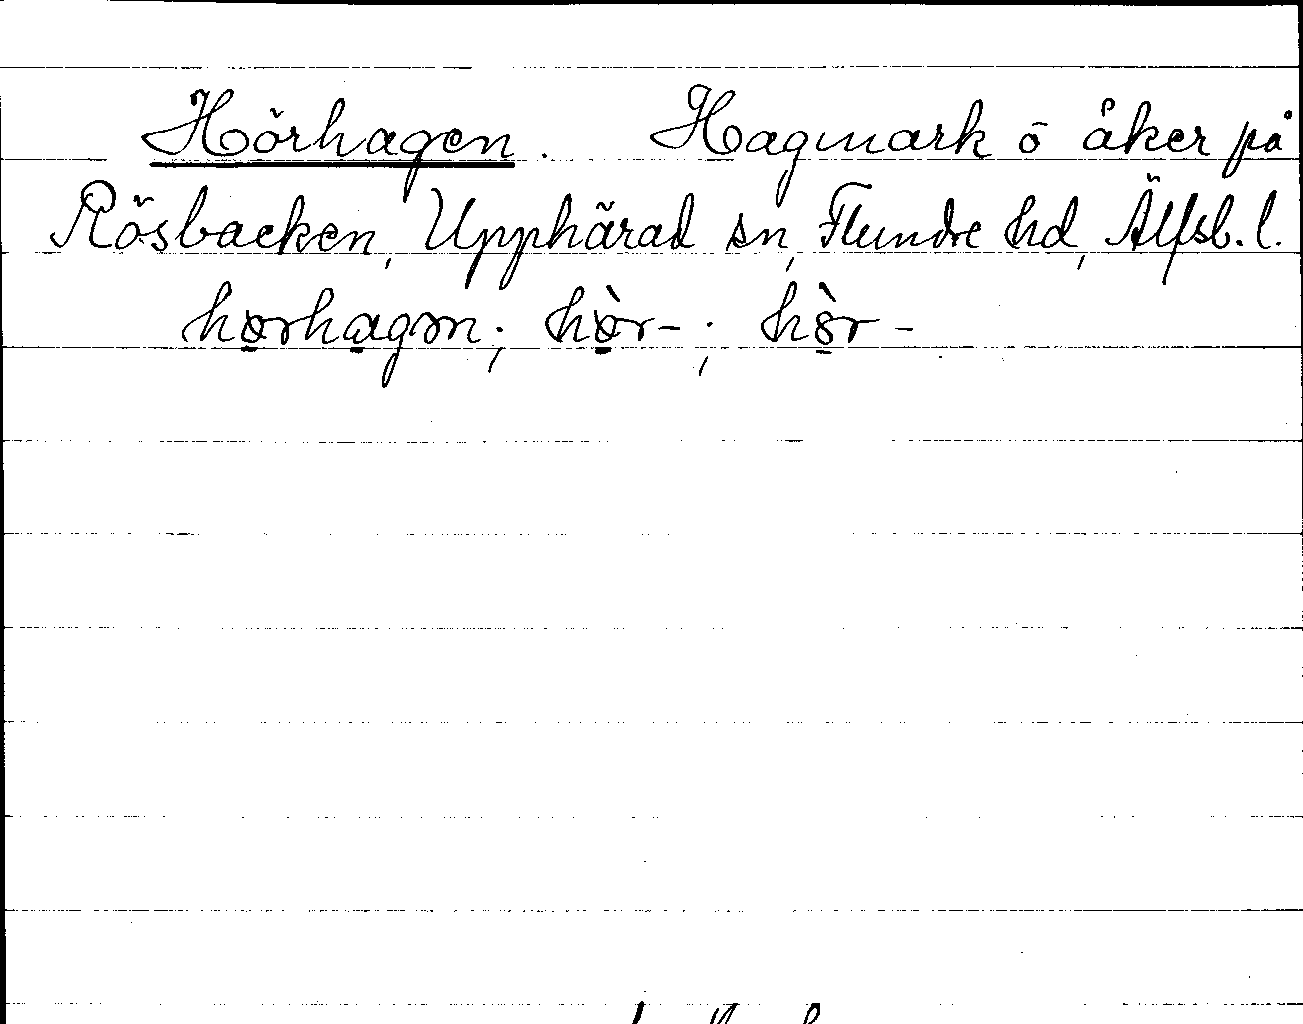 Hörhagen. Hagmark ō åker på
Rösbacken, Upphärad sn, Flundre hd, Älfsb. l.
hørhagən; hør̀-; hòr-